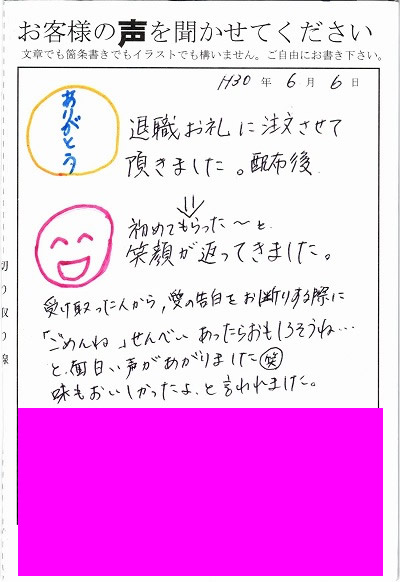 お客様の声を聞かせてください
文章でも箇条書きでもイラストでも構いません。ご自由にお書き下さい。
H30 年 6 月 6 日
ありがとう
退職お礼に注文させて
頂きました。配布後
初めてもらった〜と
笑顔が返ってきました。
受け取った人から、愛の告白をお断りする際に
「ごめんね」せんべい あったらおもしろそうね…
と、面白い声があがりました(笑)
味もおいしかったよ、と言われました。
切り取り線